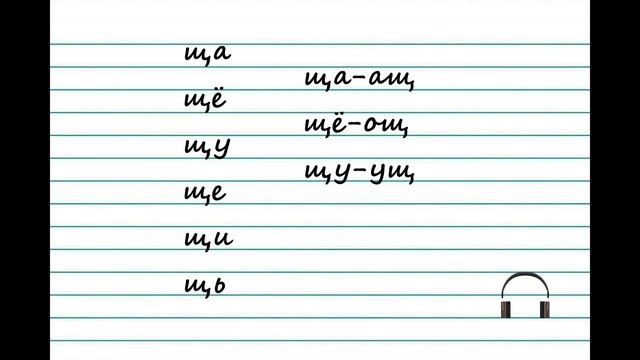 ща
щё
щу
ще
щи
щь
ща-ащ
щё-ощ
щу-ущ